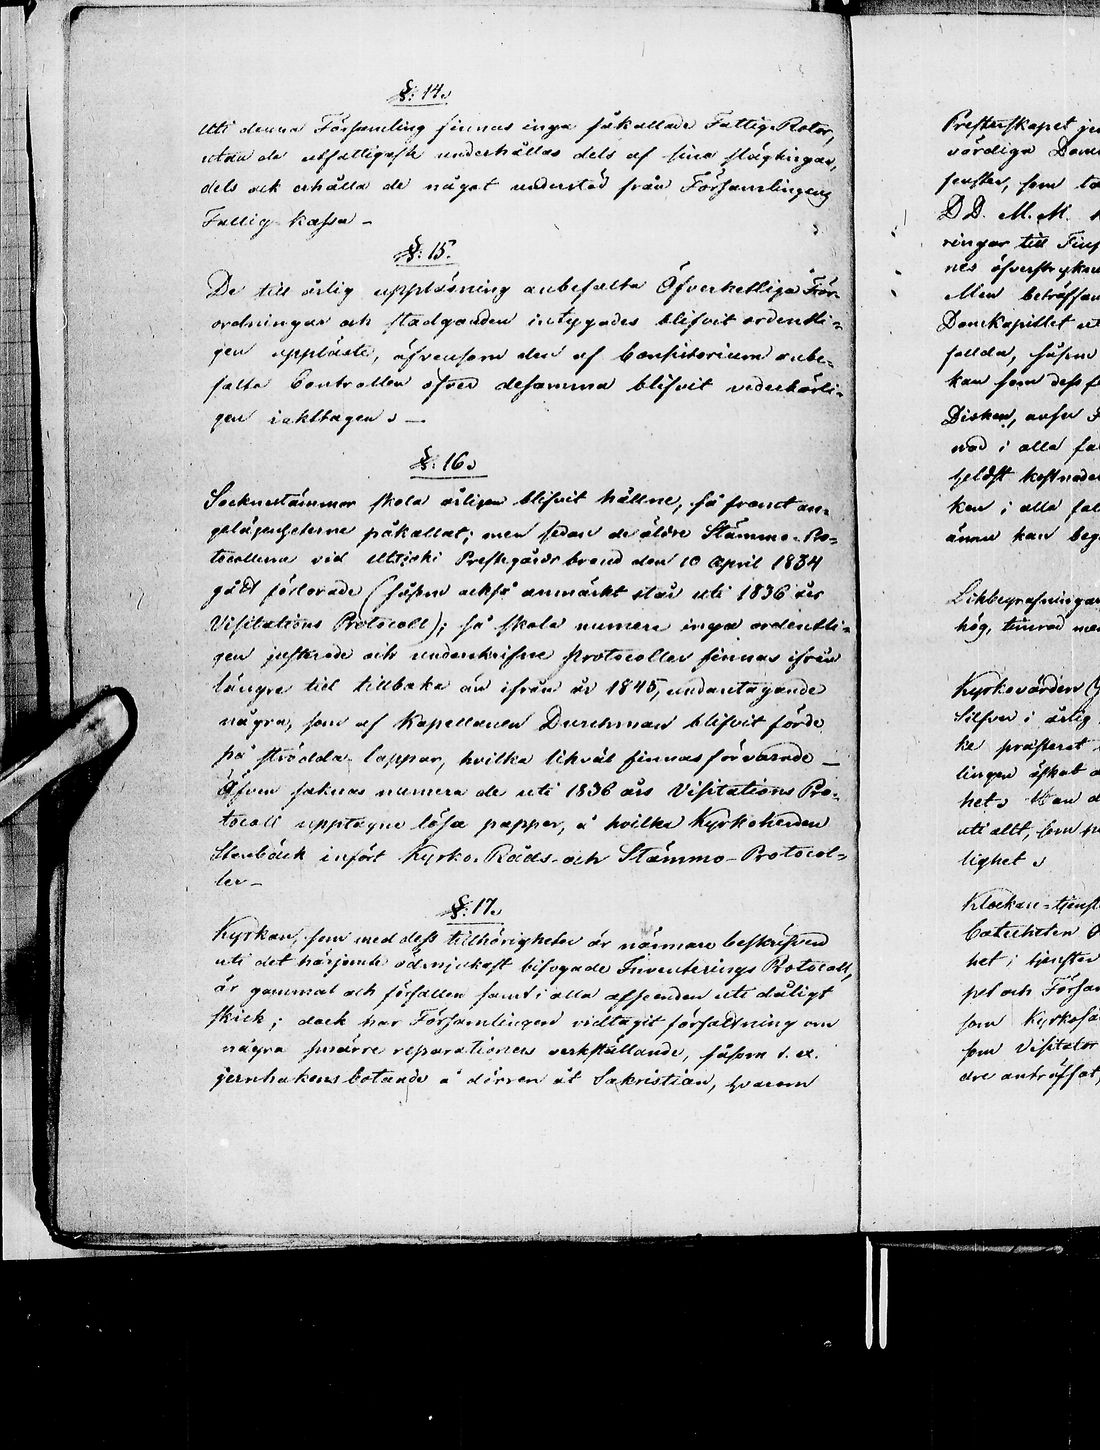 §. 14.
Uti denna Församling finnas inga såkallade Fattig-Rotar,
utan de utfattigaste underhållas dels af sina slägtingar,
dels ock erhålla de något understöd från Församlingens
Fattig-kassa —
§. 15.
De till årlig uppläsning anbefalta Öfverhetliga För-
ordningar och stadganden intygades blifvit ordentli-
gen uppläste, äfvensom den af Consistorium anbe-
falta Controllen öfver desamma blifvit vederbörli-
gen iakttagen. —
§. 16.
Socknestämmor skola årligen blifvit hållne, så framt an-
gelägenheterne påkallat; men sedan de äldre Stämmo-Pro-
tocollerna vid Prestegårds brand den 10 April 1834
gådt förlorade (såsom också anmärkt står uti 1836 års
Visitations Protocoll); så skola numera inga ordentli-
gen justerade och underskrifne Protocoller finnas ifrån
längre tid tillbaka än ifrån år 1845, undantagande
några, som af Kapellanen Durchman blifvit förde
på strödda lappar, hvilka likväl finnas förvarade —
Äfven saknas numera de uti 1836 års Visitations Pro-
tocoll upptagne lösa papper, å hvilka Kyrkoherden
Stenbäck infört Kyrko-Råds- och Stämmo-Protocol-
ler —
§. 17.
Kyrkan, som med dess tillhörigheter är närmare beskrifven
uti det härjemte ödmjukast bifogade Inventerings Protocoll,
är gammal och förfallen samt i alla afseenden uti dåligt
skick; dock har Församlingen vidtagit författning om
några smärre reparationers verkställande, såsom t. ex.
jernhakens botande å dörren åt Sakristian, hvarom
Presterskapet
vördiga
som
D.D. M.M.
ringar till
nes
Men
Domkapitlet
fallda, såsom
kan som dess
Disken,
i alla
kostnader
ken i alla
ännu kan
Likbegrafningar
hög,
Kyrkovärden
Silfver i årlig
ke
lingen
het.
uti allt, som
lighet.
Klockare-tjenst
Catecheten
het; tjensten
pel och
som
som Visitator
dre anträffat,